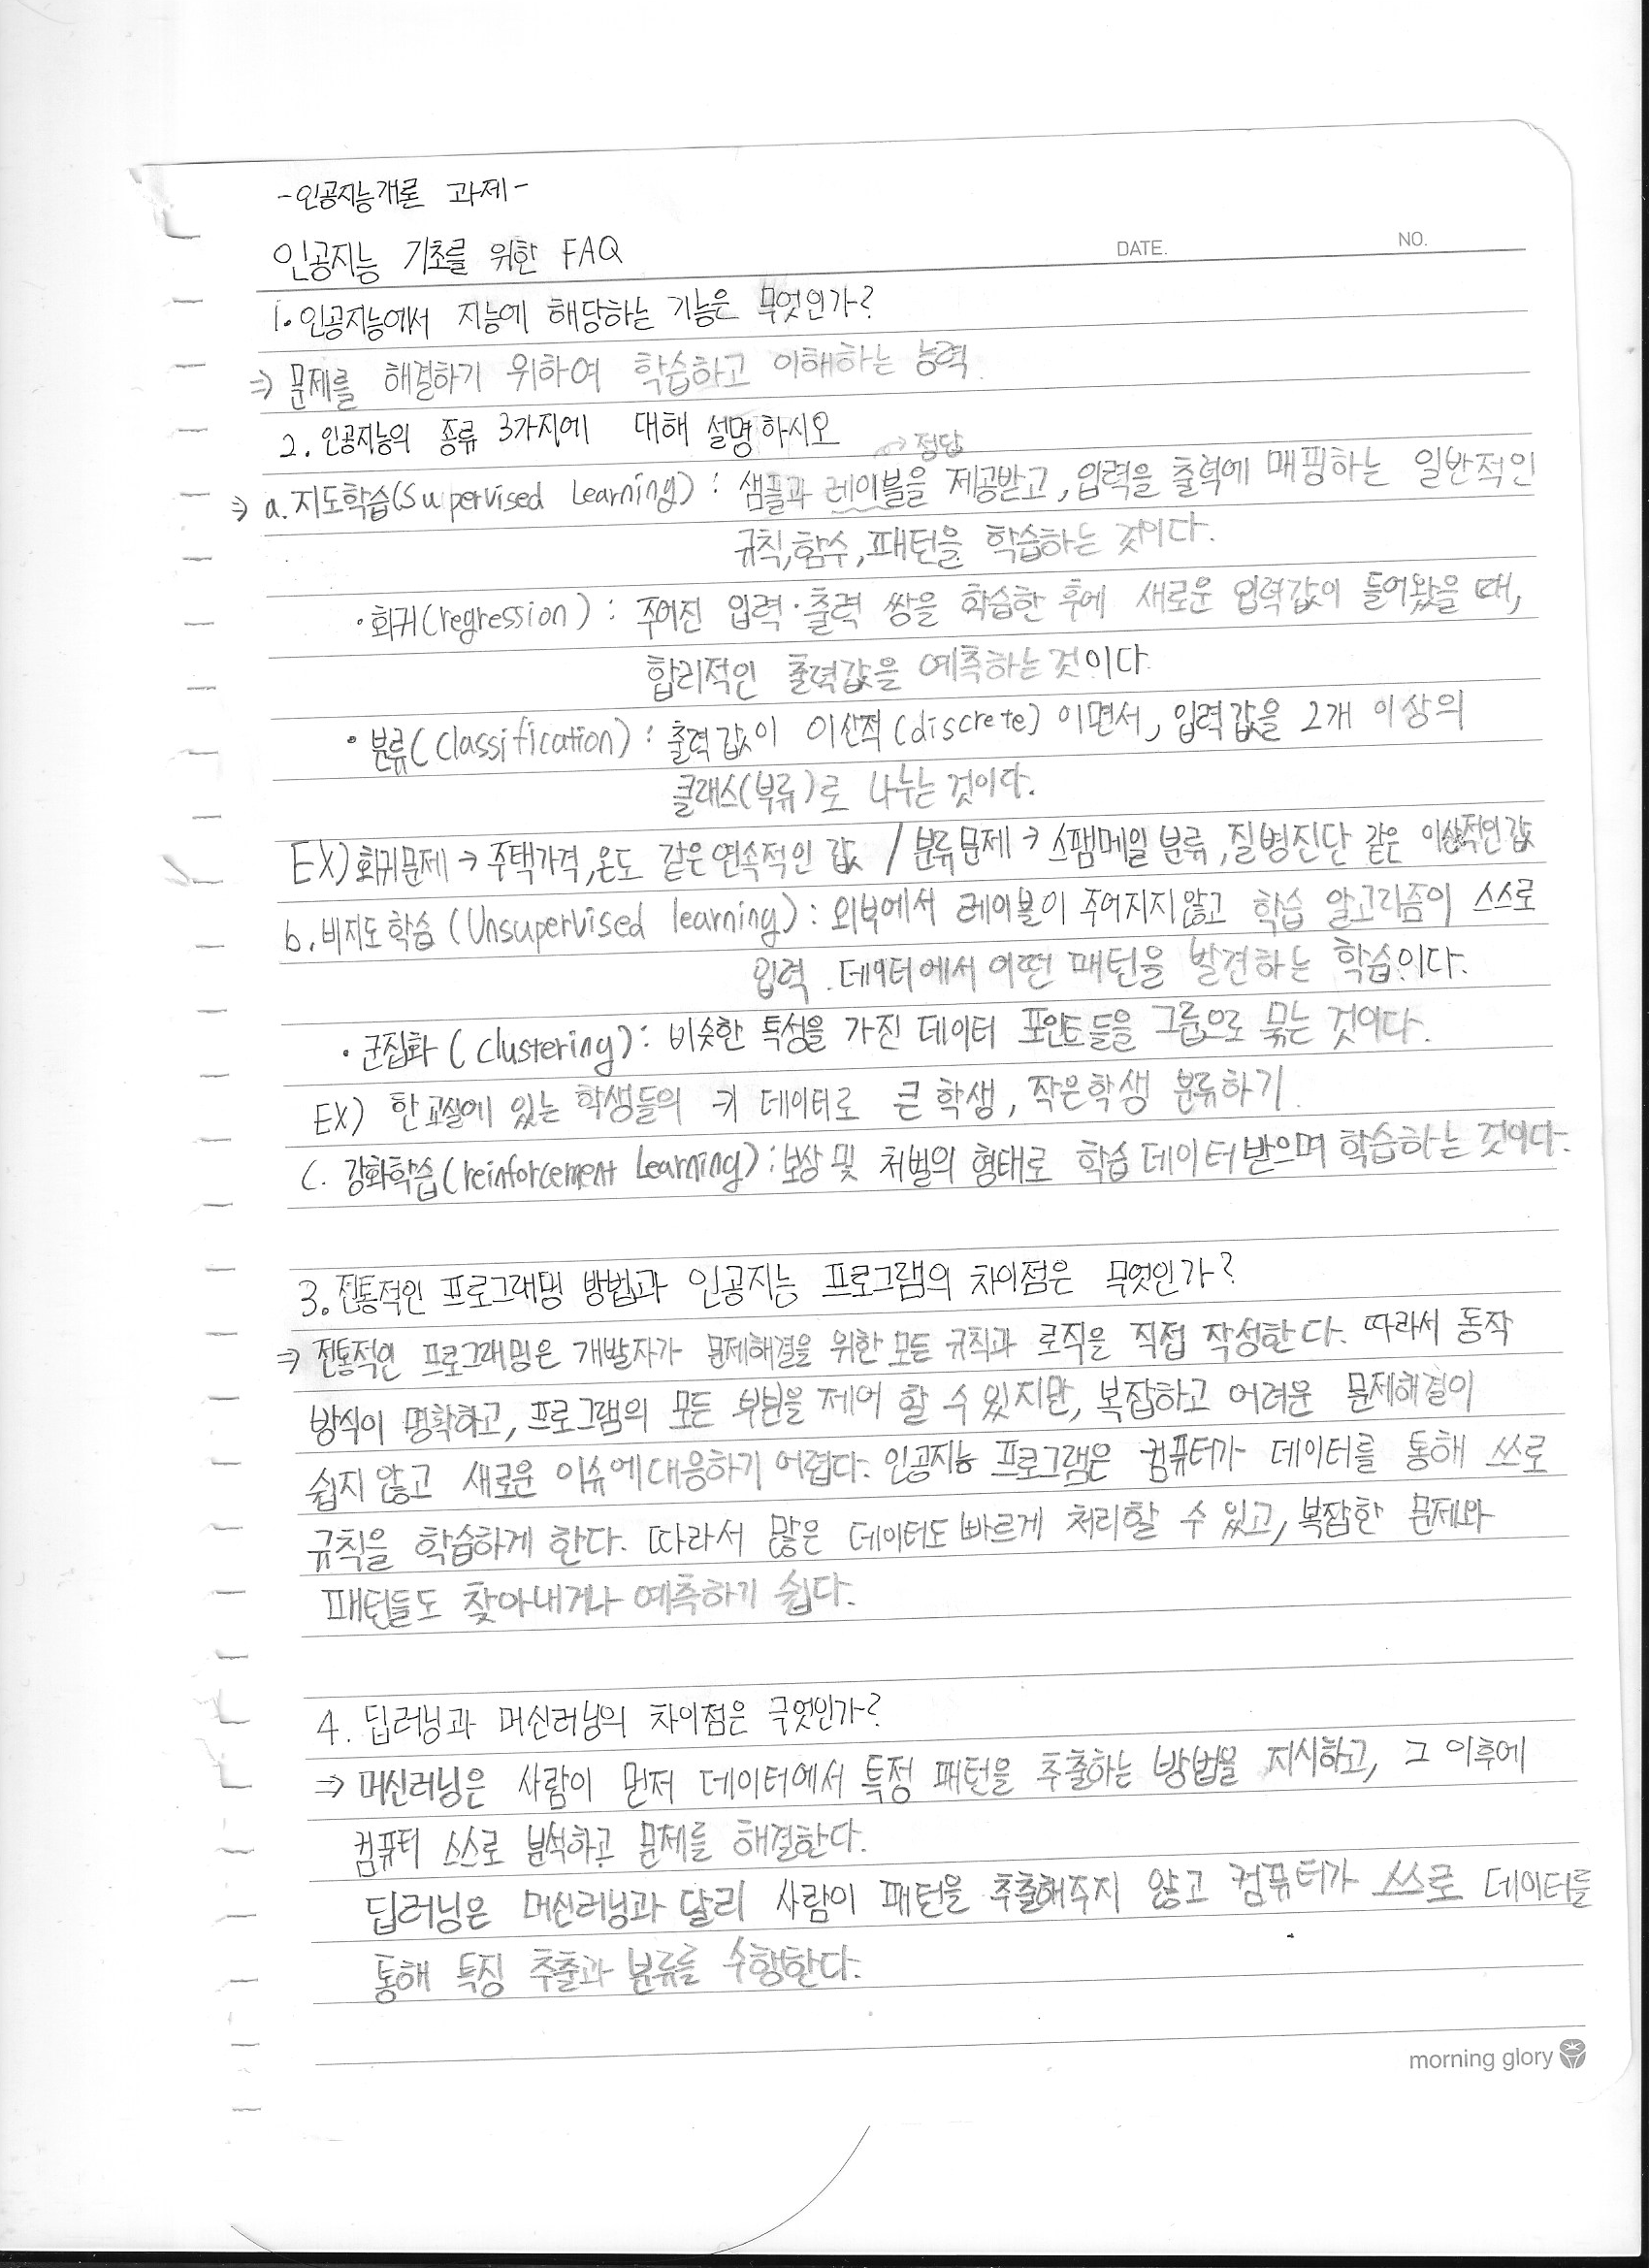 -인공지능개론 과제-
인공지능 기초를 위한 FAQ
DATE.
NO.
1. 인공지능에서 지능에 해당하는 기능은 무엇인가?
⇒ 문제를 해결하기 위하여 학습하고 이해하는 능력.
2. 인공지능의 종류 3가지에 대해 설명하시오
→ 정답
⇒ a. 지도학습(Supervised Learning) : 샘플과 레이블을 제공받고, 입력을 출력에 매핑하는 일반적인
규칙, 함수, 패턴을 학습하는 것이다.
• 회귀(regression) : 주어진 입력·출력 쌍을 학습한 후에 새로운 입력값이 들어왔을 때,
합리적인 출력값을 예측하는 것이다.
• 분류(Classification) : 출력값이 이산적(discrete)이면서, 입력값을 2개 이상의
클래스(부류)로 나누는 것이다.
EX) 회귀문제 → 주택가격, 온도 같은 연속적인 값 / 분류 문제 → 스팸메일 분류, 질병진단 같은 이산적인 값
b. 비지도 학습 (Unsupervised learning) : 외부에서 레이블이 주어지지 않고 학습 알고리즘이 스스로
입력 데이터에서 어떤 패턴을 발견하는 학습이다.
• 군집화 (clustering) : 비슷한 특성을 가진 데이터 포인트들을 그룹으로 묶는 것이다.
EX) 한 교실에 있는 학생들의 키 데이터로 큰 학생, 작은학생 분류하기.
C. 강화학습(reinforcement Learning) : 보상 및 처벌의 형태로 학습 데이터 받으며 학습하는 것이다.
3. 전통적인 프로그래밍 방법과 인공지능 프로그램의 차이점은 무엇인가?
⇒ 전통적인 프로그래밍은 개발자가 문제해결을 위한 모든 규칙과 로직을 직접 작성한다. 따라서 동작
방식이 명확하고, 프로그램의 모든 부분을 제어 할 수 있지만, 복잡하고 어려운 문제해결이
쉽지 않고 새로운 이슈에 대응하기 어렵다. 인공지능 프로그램은 컴퓨터가 데이터를 통해 쓰로
규칙을 학습하게 한다. 따라서 많은 데이터도 빠르게 처리할 수 있고, 복잡한 문제와
패턴들도 찾아내거나 예측하기 쉽다.
4. 딥러닝과 머신러닝의 차이점은 무엇인가?
⇒ 머신러닝은 사람이 먼저 데이터에서 특정 패턴을 추출하는 방법을 지시하고, 그 이후에
컴퓨터 스스로 분석하고 문제를 해결한다.
딥러닝은 머신러닝과 달리 사람이 패턴을 추출해주지 않고 컴퓨터가 스스로 데이터를
통해 특징 추출과 분류를 수행한다.
morning glory